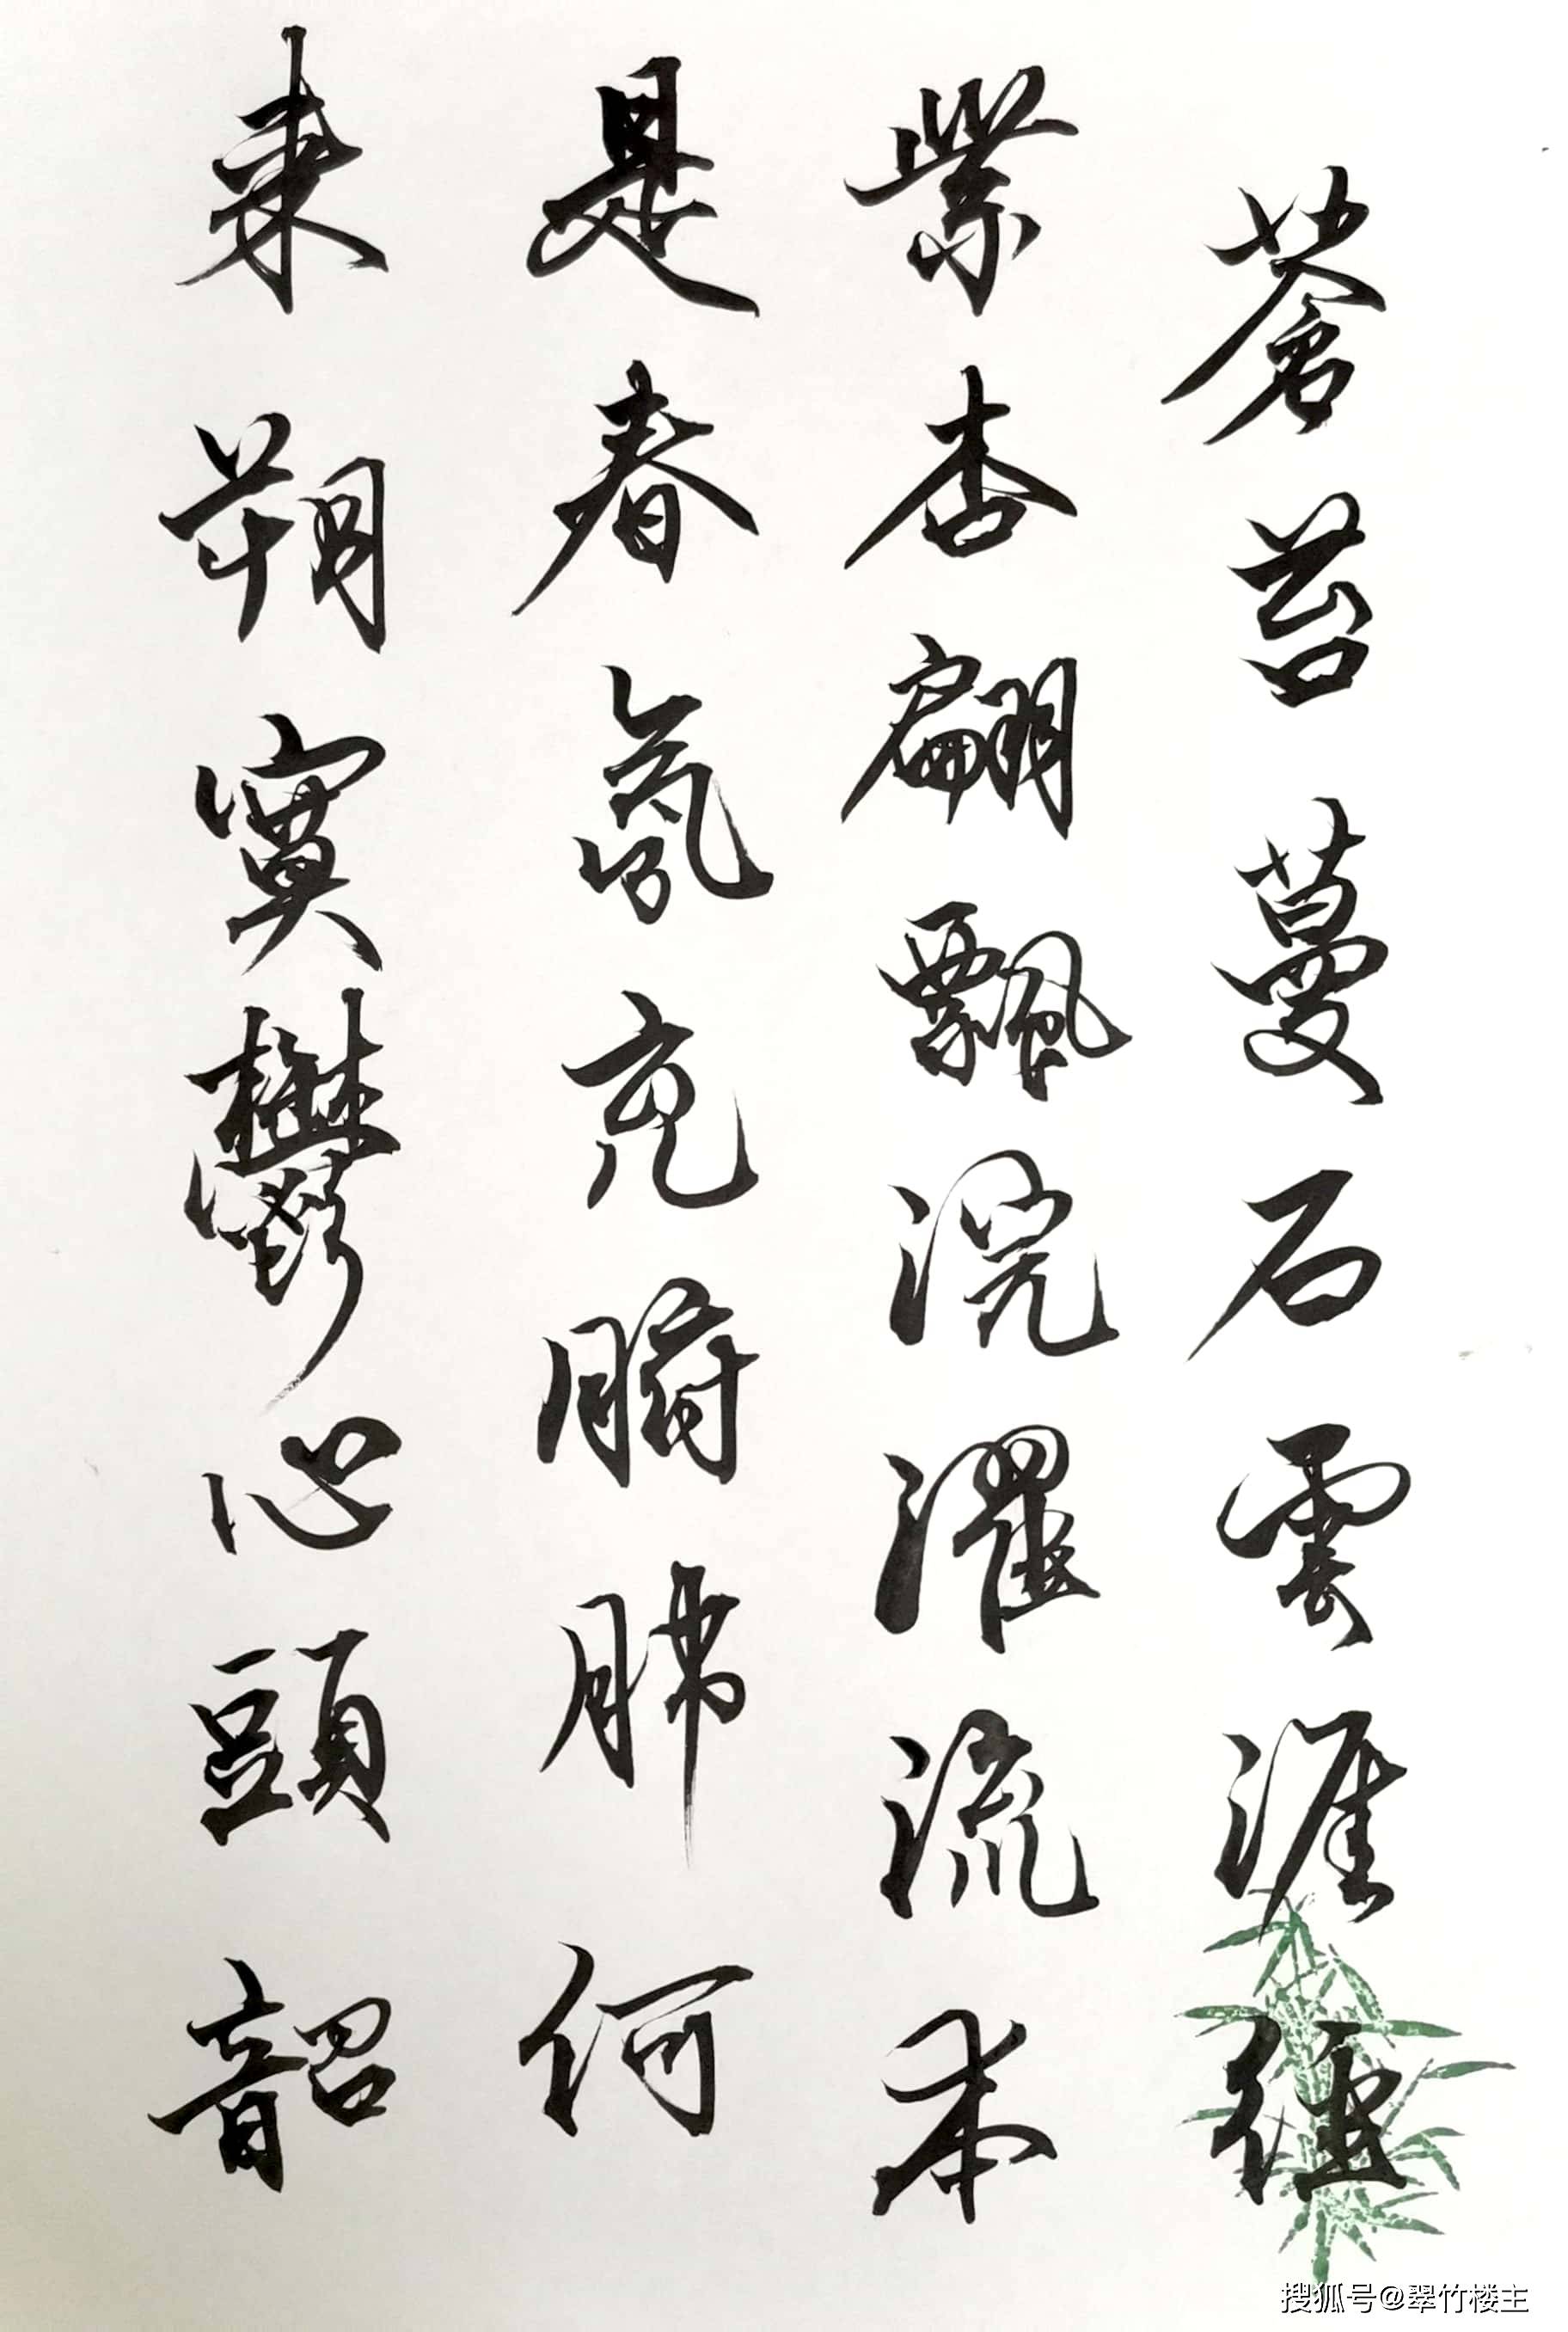 蒼苔蔓石雲涯徑
紫杏翩飄浣濯流本
是春氛充肺何
來朔寞鬱心頭韶
搜狐号@翠竹楼主